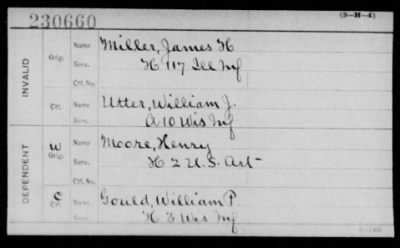 230660
(3—H—4)
INVALID
Orig. Name Miller, James H
Serv. H 117 Ill Inf
Ctf. No.
Ctf. Name Utter, William J.
Serv. A 10 Wis Inf
DEPENDENT
W Orig. Name Moore, Henry
Serv. H 2 U.S. Art
Ctf. No.
C Ctf. Name Gould, William P
Serv. H 3 Wis Inf